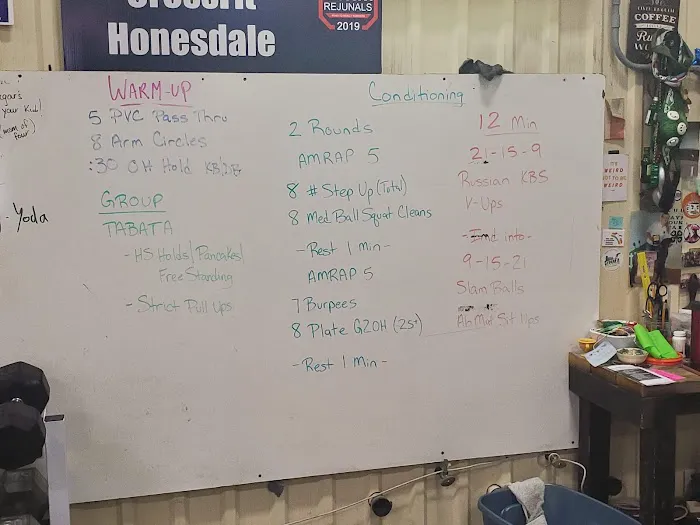 CrossFit
Honesdale
REJUNALS
2019
COFFEE
your Kid!
four
- Yoda
WARM-UP
5 PVC Pass Thru
8 Arm Circles
:30 OH Hold KB/DB
GROUP
TABATA
- HS Holds/Pancakes/
Free Standing
- Strict Pull Ups
Conditioning
2 Rounds
AMRAP 5
8 # Step Up (Total)
8 Med Ball Squat Cleans
- Rest 1 min -
AMRAP 5
7 Burpees
8 Plate G2OH (25+)
- Rest 1 Min -
12 Min
21-15-9
Russian KBS
V-Ups
- into -
9-15-21
Slam Balls
Ab Mat Sit Ups
IT'S
WEIRD
NOT TO BE
WEIRD